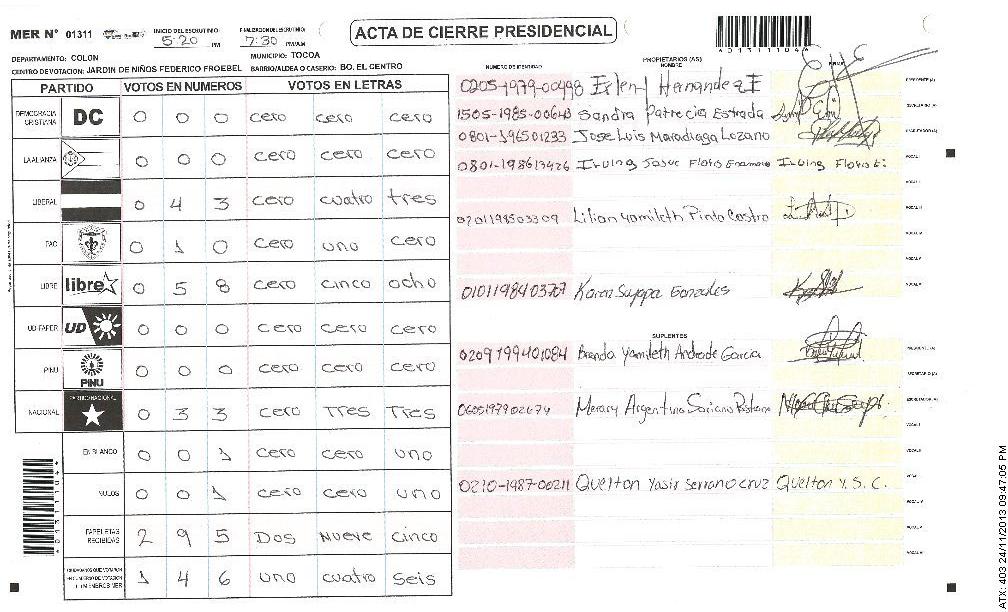 MER N° 01311
INICIO DEL ESCRUTINIO
5:20 PM
FINALIZACION ESCRUTINIO
7:30 PM/AM
ACTA DE CIERRE PRESIDENCIAL
A01311104A
DEPARTAMENTO: COLON
MUNICIPIO: TOCOA
CENTRO DE VOTACION: JARDIN DE NIÑOS FEDERICO FROEBEL
BARRIO/ALDEA O CASERIO: BO. EL CENTRO
PARTIDO VOTOS EN NUMEROS VOTOS EN LETRAS
DEMOCRACIA CRISTIANA DC 0 0 0 cero cero cero
LA ALIANZA 0 0 0 cero cero cero
LIBERAL 0 4 3 cero cuatro tres
PAC 0 1 0 cero uno cero
LIBRE libre 0 5 8 cero cinco ocho
UD-FAPER UD 0 0 0 cero cero cero
PINU PINU 0 0 0 cero cero cero
NACIONAL PARTIDO NACIONAL 0 3 3 cero Tres Tres
EN BLANCO 0 0 1 cero cero uno
NULOS 0 0 1 cero cero uno
PAPELETAS RECIBIDAS 2 9 5 Dos Nueve cinco
1 4 6 uno cuatro seis
NUMERO DE IDENTIDAD
PROPIETARIOS (AS)
NOMBRE
FIRMA
0205-1979-00498 Esleny Hernandez E
1505-1985-00640 Sandra Patrecia Estrada
0801-196501233 Jose Luis Maradiaga Lozano
0801-198613426 Irving Josue Flores Irving Flores E.
0201198503309 Lilian Yamileth Pinto Castro
0101198403707 Karen Suyapa Gonzales
SUPLENTES
0209199401084 Brenda Yamileth Andrade Garcia
0605197902674 Merary Argentina Soriano
0210-1987-00211 Quelton Yasir Serrano Cruz Quelton Y. S. C.
ATX: 403 24/11/2013 09:47:05 PM